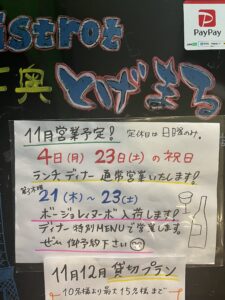 PayPay
istrot
奥 とげまる
11月営業予定! 定休日は日曜のみ。
4日(月) 23日(土)の祝日
ランチ、ディナー 通常営業いたします!
21(木)〜23(土)
ボージョレィヌーボ 入荷します!
ディナー 特別MENUで営業します。
ぜひ 御予約下さい
11月12月 貸切プラン
10名様より最大15名様まで